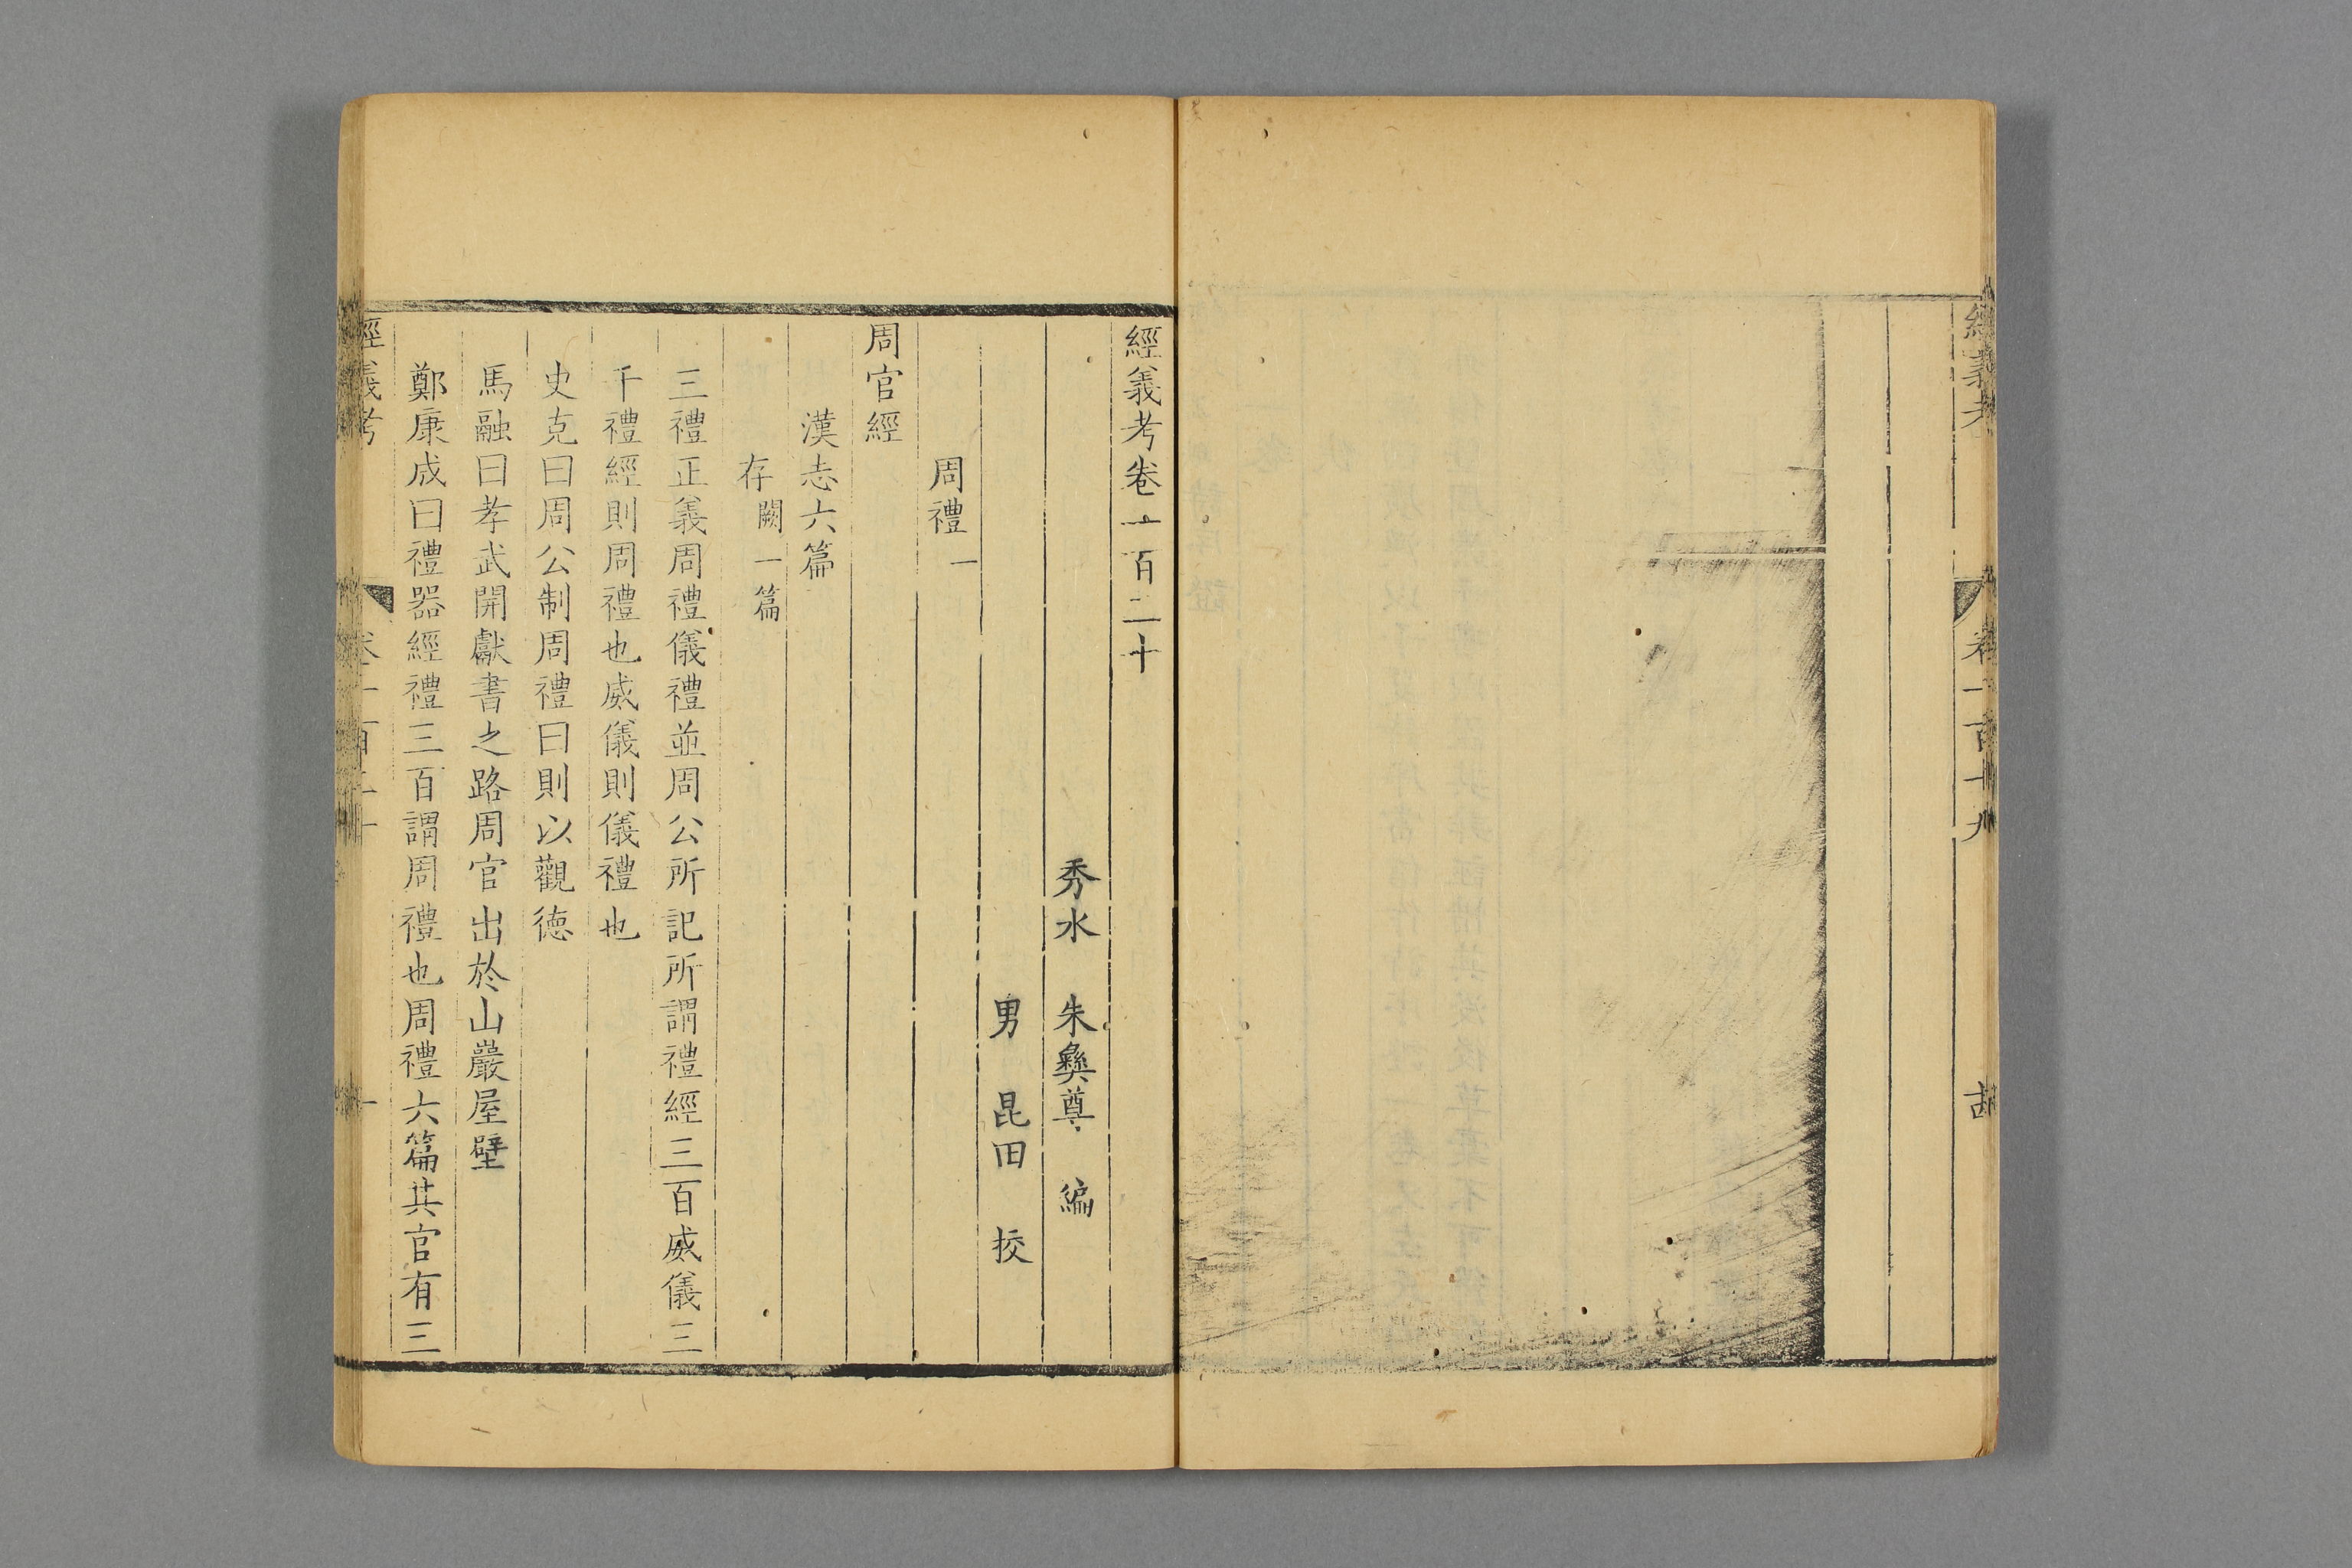 經義考 卷一百十九
經義考卷一百二十
秀水 朱彝尊 編
男 昆田 挍
周禮一
周官經
漢志六篇
存闕一篇
三禮正義周禮儀禮並周公所記所謂禮經三百威儀三
千禮經則周禮也威儀則儀禮也
史克曰周公制周禮曰則以觀德
馬融曰孝武開獻書之路周官出於山巖屋壁
鄭康成曰禮器經禮三百謂周禮也周禮六篇其官有三
經義考 卷一百二十 一